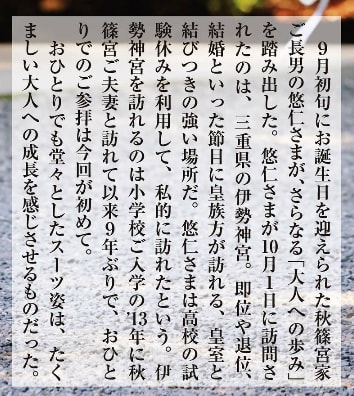 ９月初旬にお誕生日を迎えられた秋篠宮家
ご長男の悠仁さまが、さらなる「大人への歩み」
を踏み出した。悠仁さまが10月１日に訪問さ
れたのは、三重県の伊勢神宮。即位や退位、
結婚といった節目に皇族方が訪れる、皇室と
結びつきの強い場所だ。悠仁さまは高校の試
験休みを利用して、私的に訪れたという。伊
勢神宮を訪れるのは小学校ご入学の'13年に秋
篠宮ご夫妻と訪れて以来９年ぶりで、おひと
りでのご参拝は今回が初めて。
おひとりでも堂々としたスーツ姿は、たく
ましい大人への成長を感じさせるものだった。